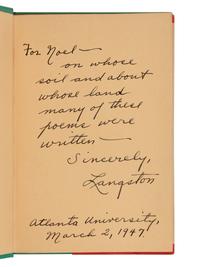 For Noel—
on whose
soil and about
whose land
many of these
poems were
written—
Sincerely,
Langston
Atlanta University,
March 2, 1947